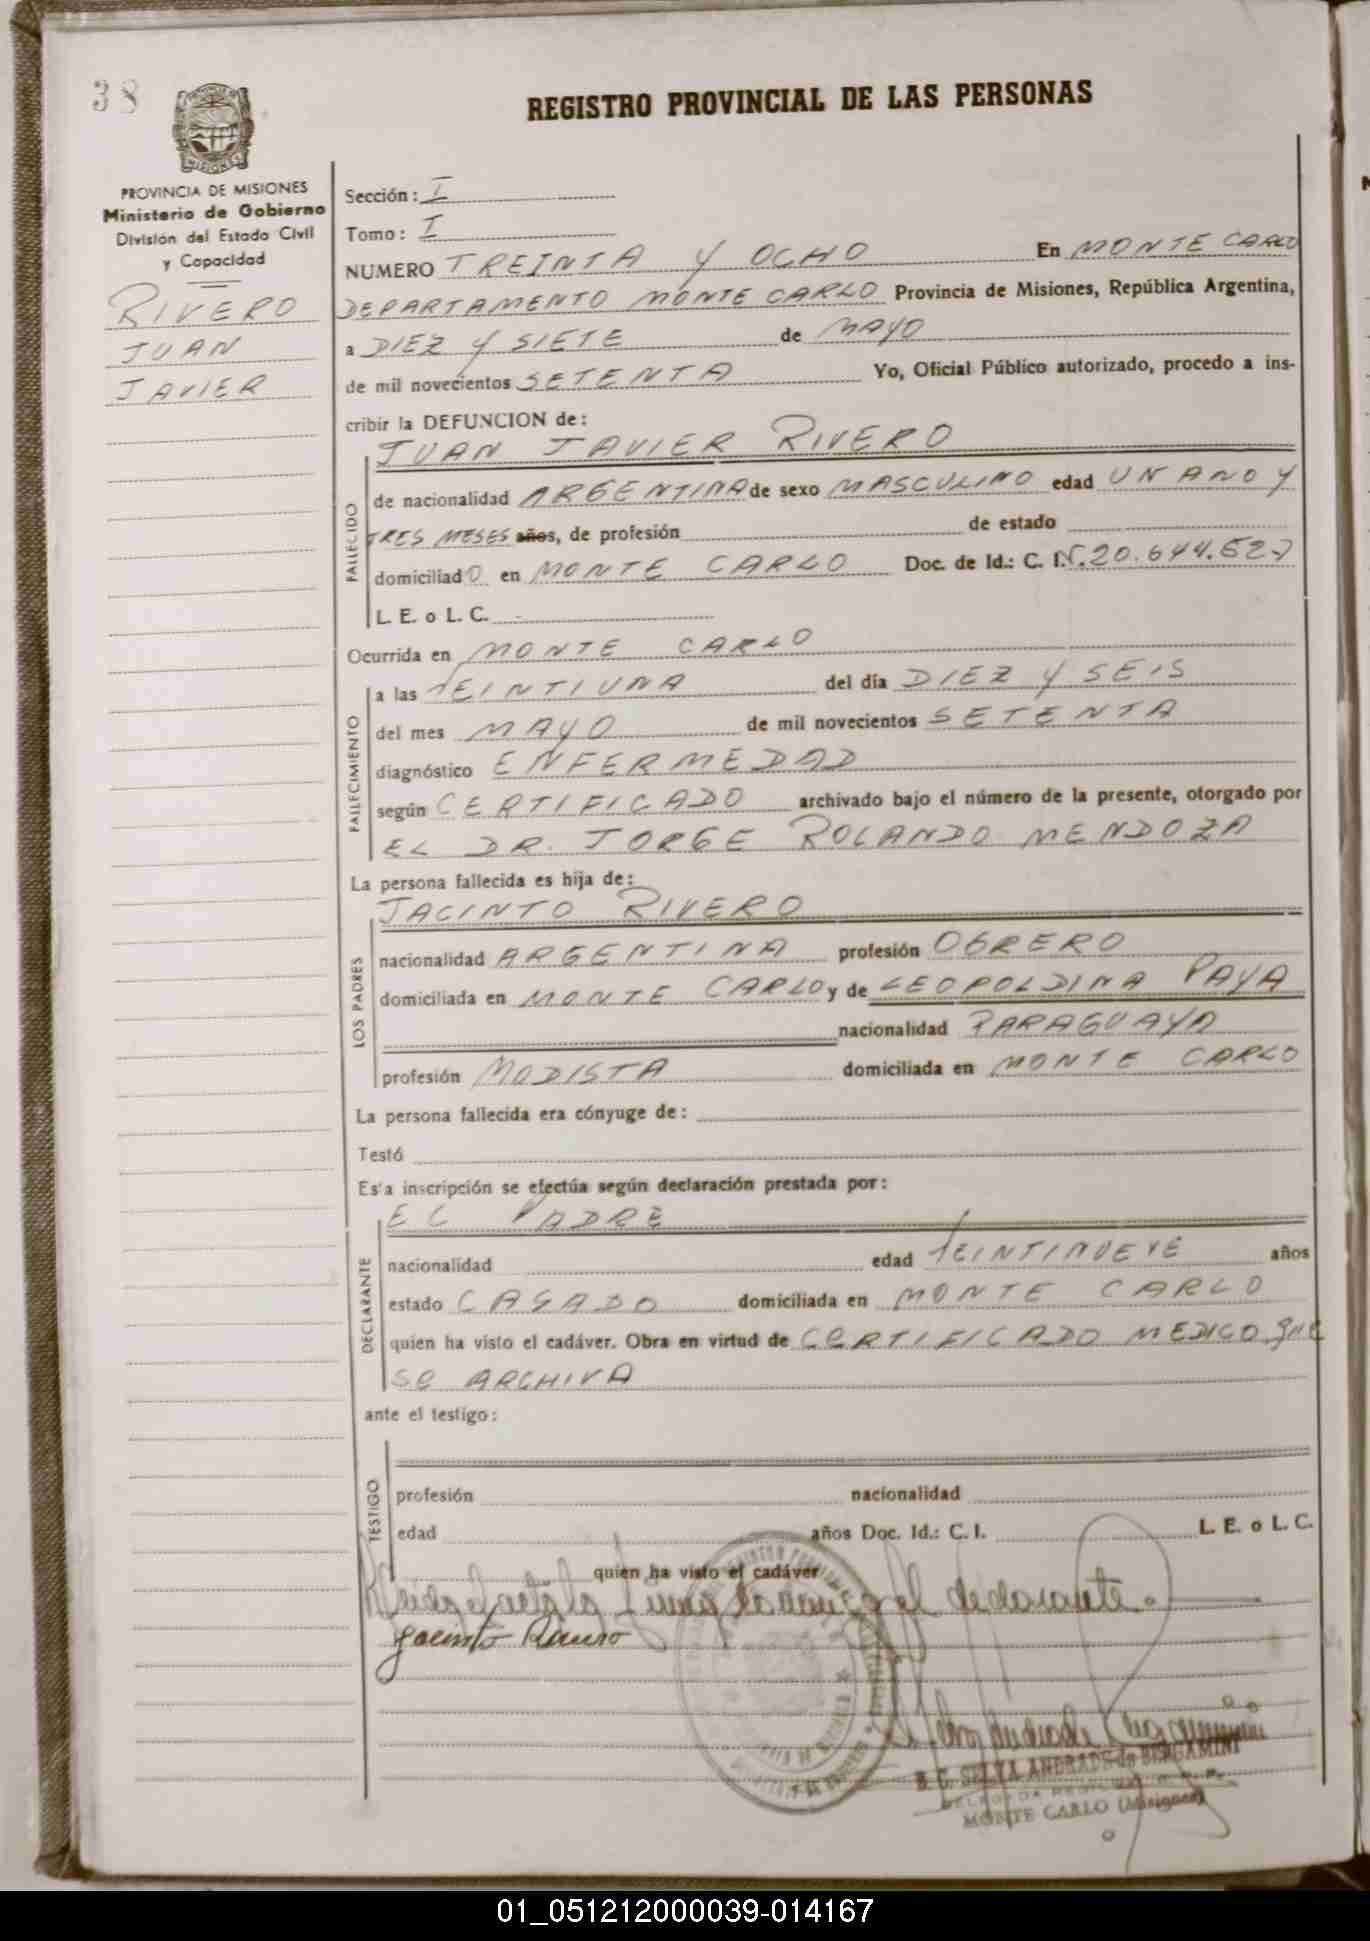 38
REGISTRO PROVINCIAL DE LAS PERSONAS
MISIONES
PROVINCIA DE MISIONES
Ministerio de Gobierno
División del Estado Civil
y Capacidad
RIVERO
JUAN
JAVIER
Sección: I
Tomo: I
NUMERO TREINTA Y OCHO En MONTE CARLO
DEPARTAMENTO MONTE CARLO Provincia de Misiones, República Argentina,
a DIEZ Y SIETE de MAYO
de mil novecientos SETENTA Yo, Oficial Público autorizado, procedo a ins-
cribir la DEFUNCION de:
JUAN JAVIER RIVERO
FALLECIDO
de nacionalidad ARGENTINA de sexo MASCULINO edad UN AÑO Y
TRES MESES años, de profesión de estado
domiciliadO en MONTE CARLO Doc. de Id.: C. I. 20.644.527
L. E. o L. C.
Ocurrida en MONTE CARLO
FALLECIMIENTO
a las VEINTIUNA del día DIEZ Y SEIS
del mes MAYO de mil novecientos SETENTA
diagnóstico ENFERMEDAD
según CERTIFICADO archivado bajo el número de la presente, otorgado por
EL DR. JORGE ROLANDO MENDOZA
La persona fallecida es hija de:
JACINTO RIVERO
LOS PADRES
nacionalidad ARGENTINA profesión OBRERO
domiciliada en MONTE CARLO y de LEOPOLDINA PAYA
nacionalidad PARAGUAYA
profesión MODISTA domiciliada en MONTE CARLO
La persona fallecida era cónyuge de:
Testó
Esta inscripción se efectúa según declaración prestada por:
EL PADRE
DECLARANTE
nacionalidad edad VEINTINUEVE años
estado CASADO domiciliada en MONTE CARLO
quien ha visto el cadáver. Obra en virtud de CERTIFICADO MEDICO QUE
SE ARCHIVA
ante el testigo:
TESTIGO
profesión nacionalidad
edad años Doc. Id.: C. I. L. E. o L. C.
quien ha visto el cadáver
Leida el acta la firma conmigo el declarante.
Jacinto Rivero
B. C. SELVA ANDRADE de BERGAMINI
MONTE CARLO (Misiones)
01_051212000039-014167